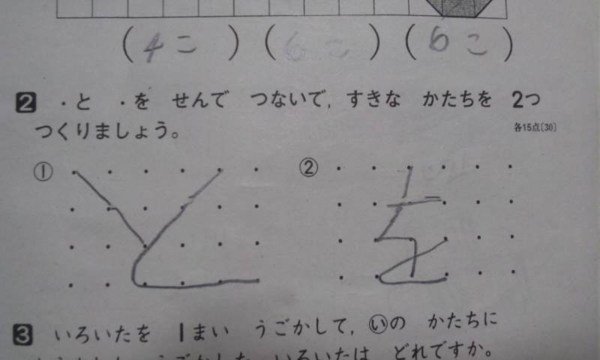 (4こ) (6こ) (6こ)
2 ・と ・を せんで つないで, すきな かたちを 2つ
つくりましょう。
各15点(30)
① ②
と を
3 いろいたを 1まい うごかして, いの かたちに
いろいたは どれですか。